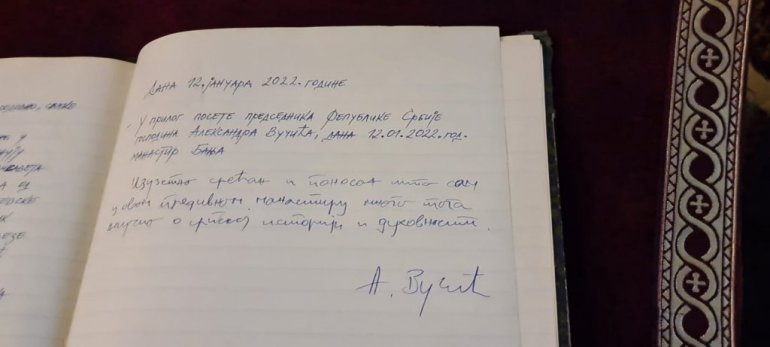 ДАНА 12. ЈАНУАРА 2022. ГОДИНЕ
У ПРИЛОГ ПОСЕТЕ ПРЕДСЕДНИКА РЕПУБЛИКЕ СРБИЈЕ
ГОСПОДИНА АЛЕКСАНДРА ВУЧИЋА, ДАНА 12.01.2022. ГОД.
МАНАСТИР БАЊА
Изузетно срећан и поносан што сам
у овом предивном манастиру много тога
научио о српској историји и духовности.
А. Вучић